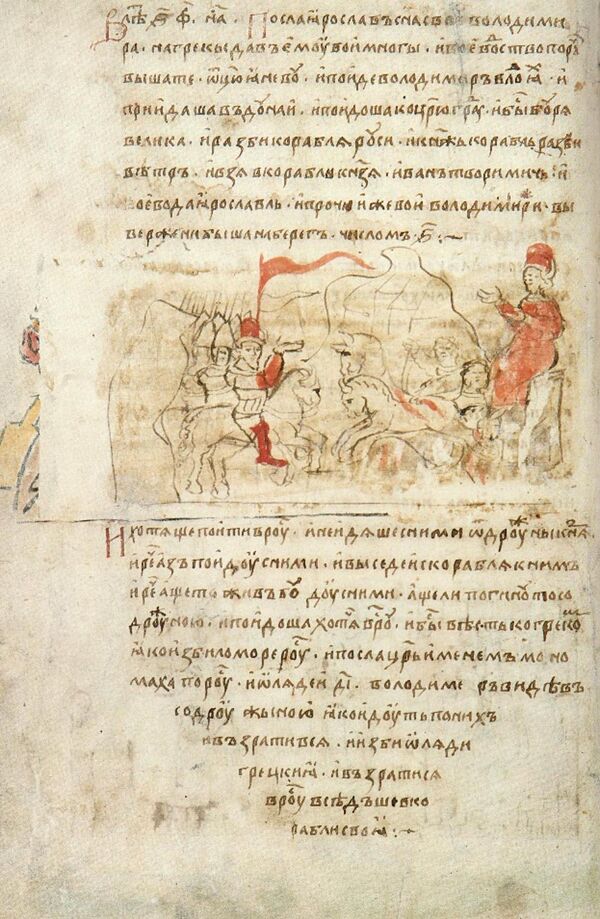 В лѣ҃ ҂ѕ҃ ф҃ н҃а · Посла Ꙗрославъ сн҃а своего Володими
ра · на грекы · и давъ ему вои многы · и воеводьство пор
Вышате · ѿцю Ꙗневу · и поиде Володимиръ в лод҃ꙗ · и
приидоша в Дунаи · и поидоша к Цр҃юграду · и быⷭ҇ бурѧ
велика · и разби корабля Руси · и кнѧжь корабль разби
вѣтръ · и взѧ в корабль кн҃зѧ · Иванъ Творимичь и
воевода Ꙗрославль · и прочии же вои Володимири · вы
вержени быша на берегъ · числомъ · ҂ѕ҃ · :~
И хотѧще поити в Русь · и не идѧше с ними ѿ дружины кн҃ѧ
и рече азъ поиду с ними · и выседе ис корабля к ним
и рече аще живъ буду с ними · аще ли погыну то со
дружиною · и поидоша хотѧ в Русь · и быⷭ҇ вѣсть ко греком
ꙗко изби море Русь · и посла цр҃ь именемъ Моно
махъ по Руси · и ѡлядеи · д҃і · Володимеръ видѣвъ
со дружиною ꙗко идуть по нихъ
и възратився · и изби ѡляди
грецкиꙗ · и възратисѧ
в Русь всѣдъше в ко
рабли своꙗ · :~